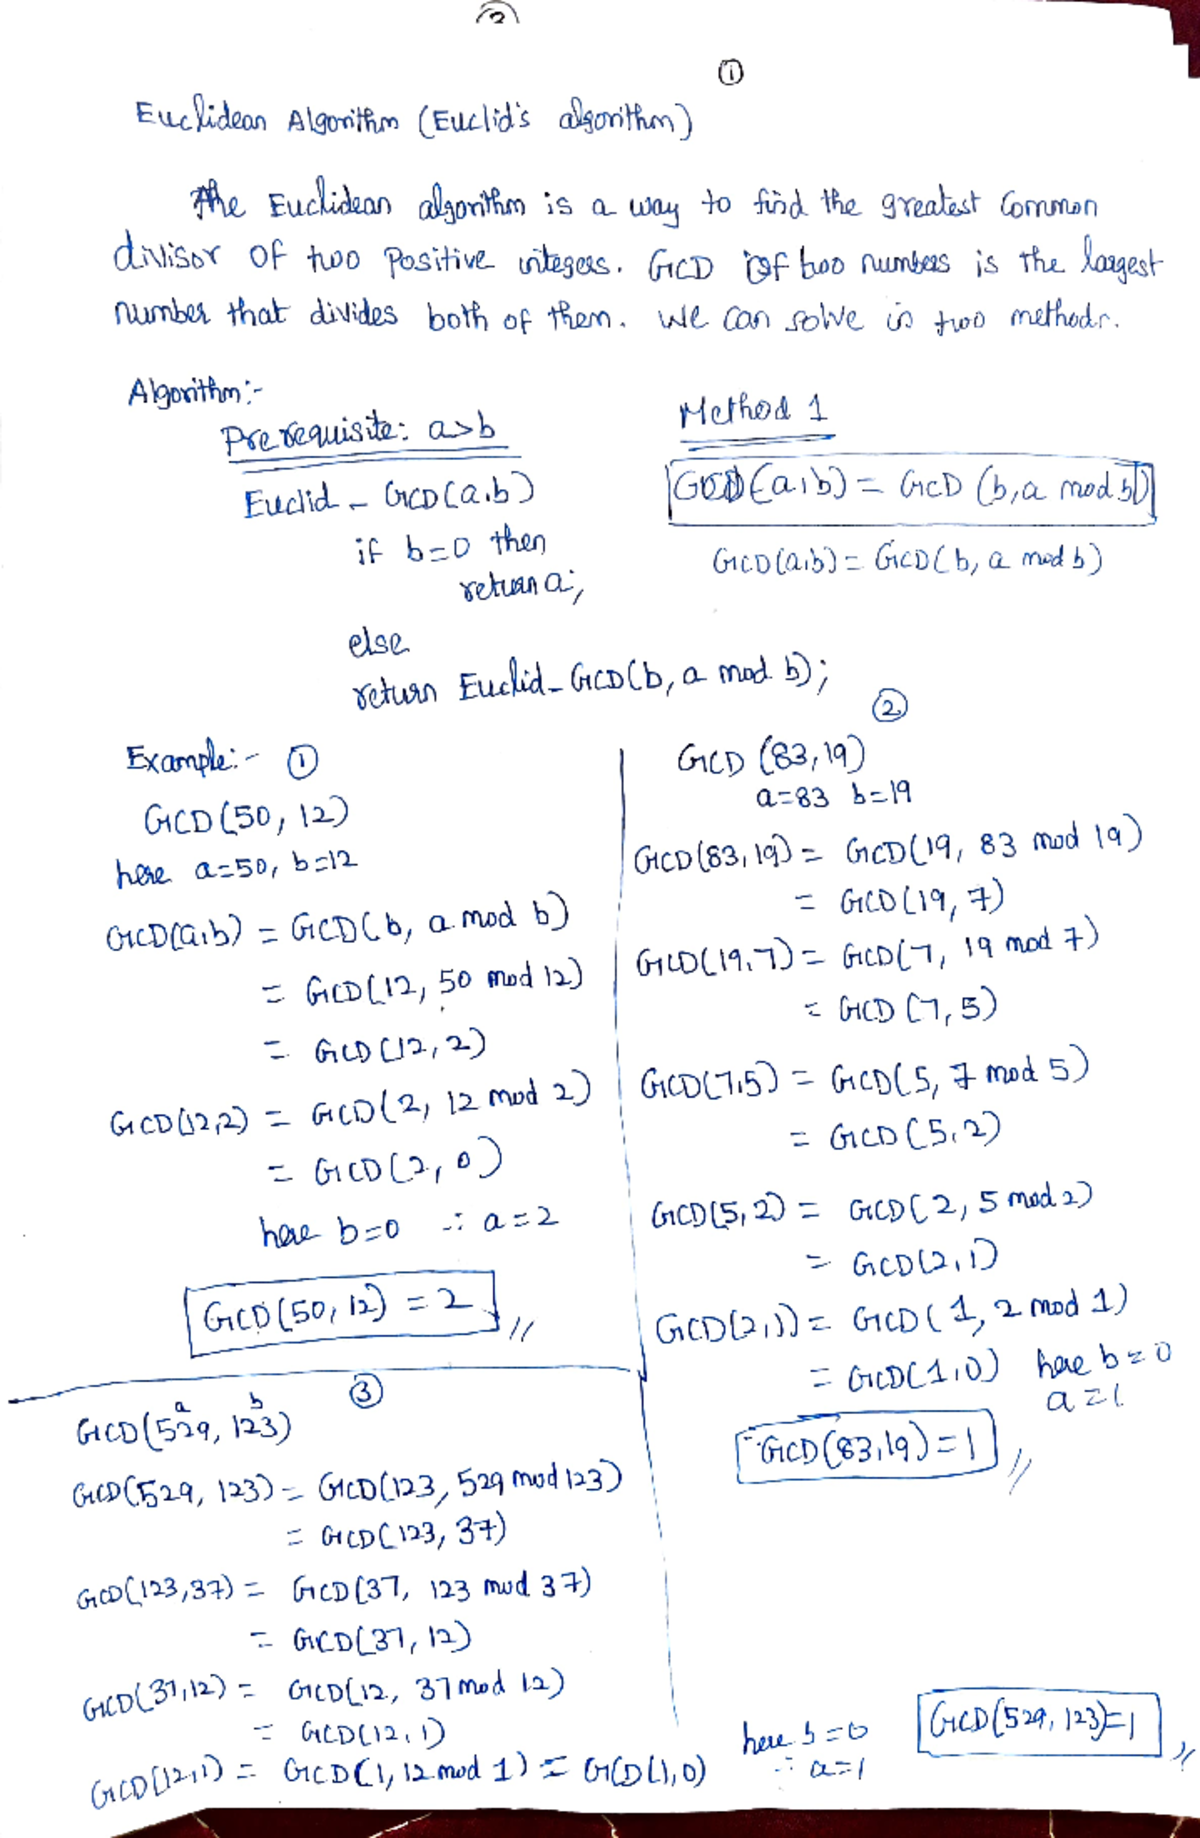 2
1
Euclidean Algorithm (Euclid's algorithm)
The Euclidean algorithm is a way to find the greatest Common
divisor of two Positive integers. GCD of two numbers is the largest
number that divides both of them. We can solve in two methods.
Algorithm:-
Prerequisite: a>b
Euclid - GCD(a,b)
if b=0 then
return a;
else
return Euclid-GCD(b, a mod b);
Method 1
GCD(a,b) = GCD (b,a mod b)
GCD(a,b) = GCD(b, a mod b)
Example:- ①
GCD(50, 12)
here a=50, b=12
GCD(a,b) = GCD(b, a mod b)
= GCD(12, 50 mod 12)
= GCD(12,2)
GCD(12,2) = GCD(2, 12 mod 2)
= GCD(2,0)
here b=0 ∴ a=2
GCD(50,12) = 2
②
GCD (83,19)
a=83 b=19
GCD(83,19) = GCD(19, 83 mod 19)
= GCD(19,7)
GCD(19,7) = GCD(7, 19 mod 7)
= GCD (7,5)
GCD(7,5) = GCD(5, 7 mod 5)
= GCD(5,2)
GCD(5,2) = GCD(2, 5 mod 2)
= GCD(2,1)
GCD(2,1) = GCD(1, 2 mod 1)
= GCD(1,0) here b=0
a=1
GCD(83,19) = 1
③
a b
GCD(529, 123)
GCD(529, 123) = GCD(123, 529 mod 123)
= GCD(123, 37)
GCD(123,37) = GCD(37, 123 mod 37)
= GCD(37, 12)
GCD(37,12) = GCD(12, 37 mod 12)
= GCD(12,1)
GCD(12,1) = GCD(1, 12 mod 1) = GCD(1,0)
here b=0
∴ a=1
GCD(529, 123)=1